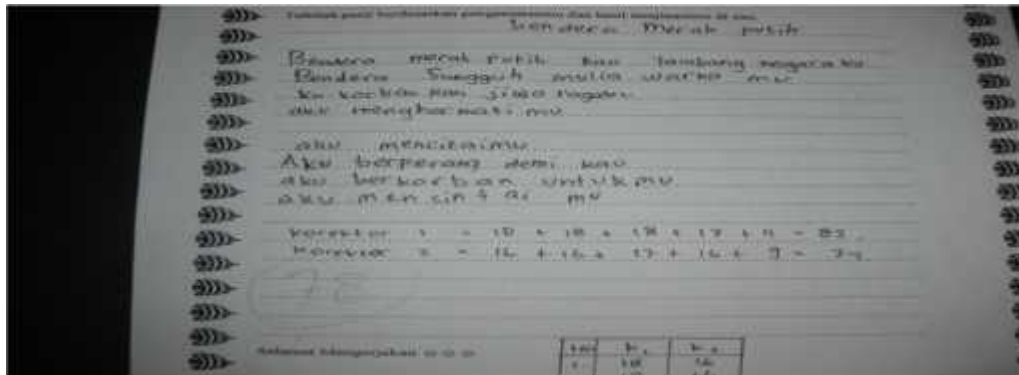 Tuliskan puisi berdasarkan pengamatanmu dan hasil
Bendera Merah putih
Bendera merah putih kau lambang negara ku
Bendera Sungguh mulia warna mu
ku korbankan jiwa ragaku
aku menghormati mu
aku mencintaimu
Aku berperang demi kau
aku berkorban untuk mu
aku mencintai mu
korektor 1 = 18 + 18 + 18 + 17 +
Korektor 2 = 16 + 16 + 17 + 16 + 9 = 74
78
Selamat Mengerjakan ☺ ☺ ☺
K1 K2
1 18 16